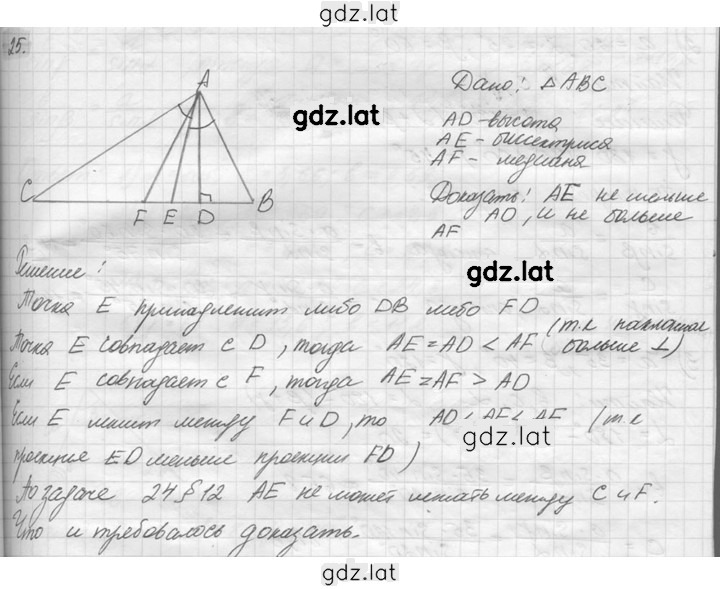 gdz.lat
25.
A
Дано: △ABC
gdz.lat
AD - высота
AE - биссектриса
AF - медиана
C
F E D B
Доказать: AE не меньше
AD, и не больше
AF
gdz.lat
Решение:
Точка E принадлежит либо DB либо FD
Точка E совпадает с D, тогда AE = AD < AF (т.к наклонная больше ⊥)
Если E совпадает с F, тогда AE = AF > AD
Если E лежит между F и D, то AD < AE < AF (т.к
gdz.lat
проекция ED меньше проекции FD)
По задаче 24 § 12 AE не может лежать между C и F.
Что и требовалось доказать.
gdz.lat